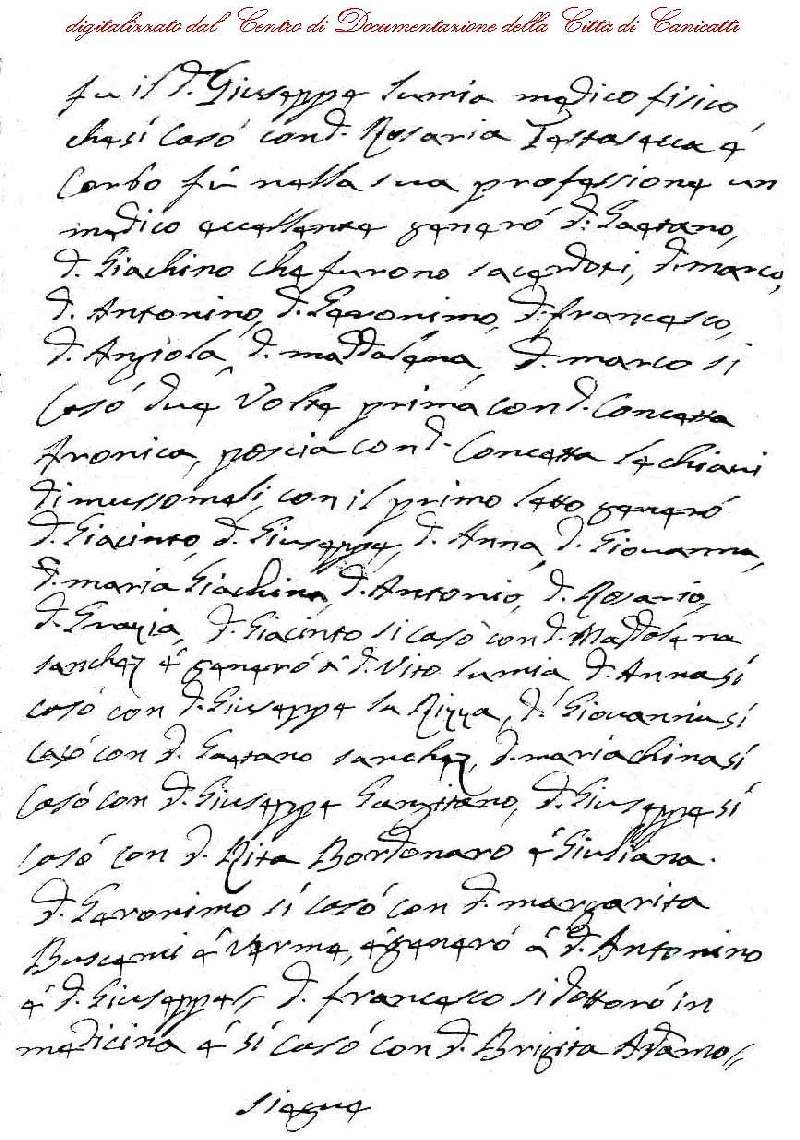 digitalizzato dal Centro di Documentazione della Città di Canicattì
fu il d. Giuseppe lumia medico fisico
che si casó con d. Rosaria Testasecca é
Corbo fú nella sua professione un
medico eccellente generó d. Gaetano,
d. Giachino che furono sacerdoti, d. marco,
d. Antonino, d. Geronimo, d. francesco,
d. Angiola, d. maddalena, d. marco si
Casó due Volte prima con d. Concetta
Aronica, poscia con d. Concetta lo chiavi
di mussomeli, con il primo letto generó
d. Giacinto, d. Giuseppe, d. Anna, d. Giovanna,
d. maria Giachina, d. Antonio, d. Rosario,
d. Grazia, d. Giacinto si casó con d. Maddalena
sanchez é generó á d. Vito lumia d. Anna si
casó con d. Giuseppe la Rizza, d. Giovanna si
casó con d. Gaetano sanchez, d. mariachina si
Casó con d. Giuseppe Gangitano, d. Giuseppe si
casó con d. Rita Bordonaro é Giuliana.
d. Geronimo si casó con d. margarita
Buscemi é Verme, é generó á d. Antonino
é d. Giuseppe// d. francesco si dottoró in
medicina é si casó con d. Brigita Adamo//
siegue